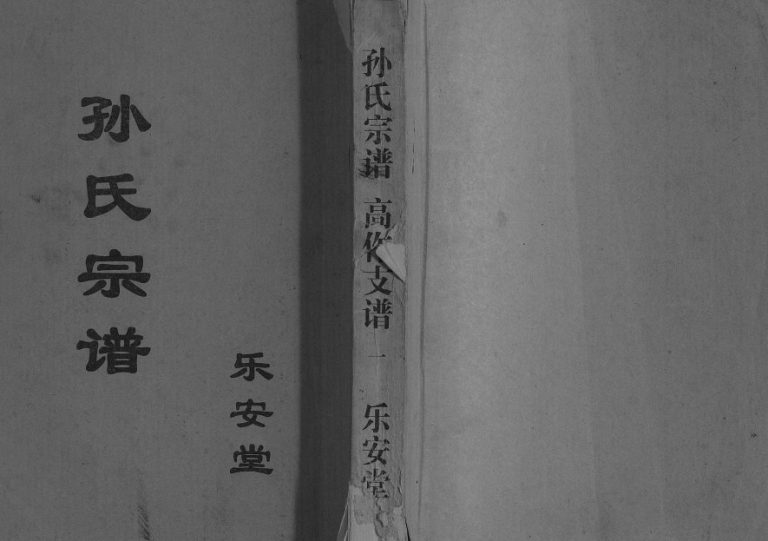 孙氏宗谱
乐安堂
孙氏宗谱 高作支谱 一 乐安堂